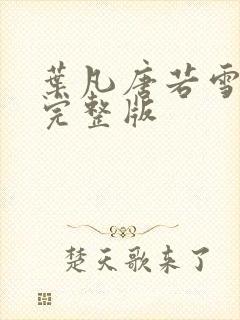 葉凡唐若雪
完整版
楚天歌来了